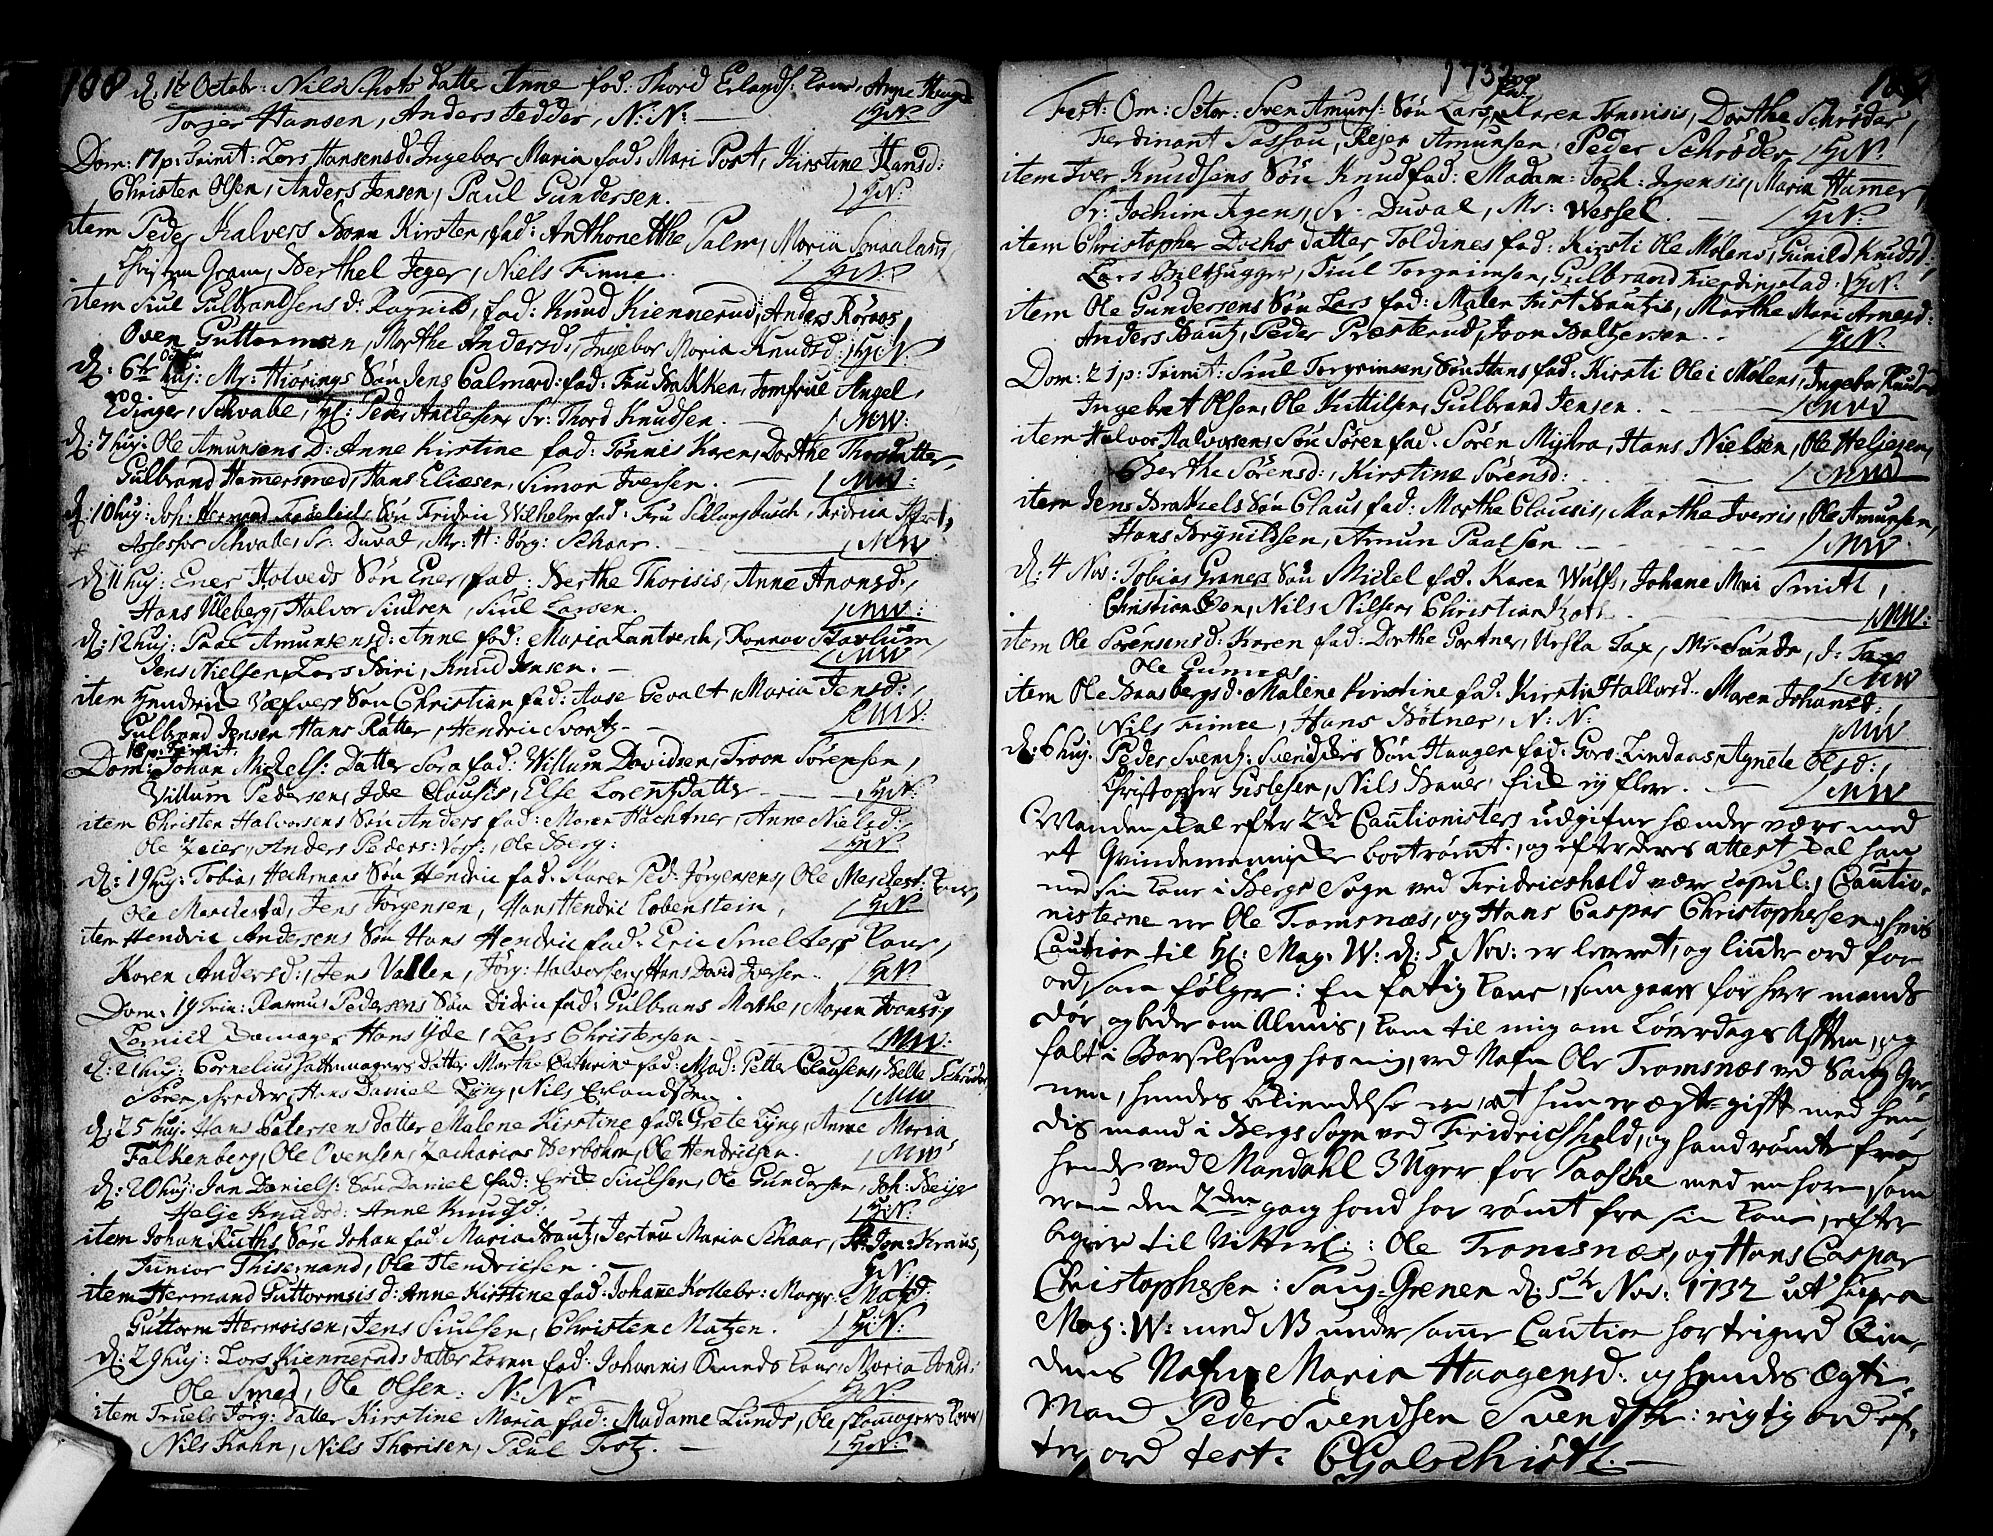 108 d: 1ste Octobr: Nils Schots datter Anne fad: Thord Erlands: kone, Anne Hangd
Torger Hansen, Anders Fedder, N: N: — HN.
Dom: 17 p: Trinit: Lars Hansens d: Ingebor Maria fad: Mari Post, Kirstine Hansd:
Christen Olsen, Anders Jensen, Paul Gundersen. HN.
item Peder Kalvers Barn Kirsten, fad: Anthonette Palm, Maria Smaaland,
Christen Gram, Berthel Jeger, Niels Finne. HN.
item Siul Gulbrandsens d: Ragnild, fad: Knud Kiennerud, Anders Røraas,
Oven Guttormsen, Marthe Andersd:, Ingebor Maria Knudsd: HN.
d: 6te huj: Mr: Hiørings Søn Jens Calmard: fad: Fru Bakken, Jomfrue Angel,
Edinger, Schvabe, Hl: Peder Andersen, Sr: Thord Knudsen. MW:
d: 7 huj: Ole Amunsens D: Anne Kirstine fad: Tønnis Karen, Dorthe Thorsdatter,
Gulbrand Hammersmed, Hans Eliæsen, Simon Iversen. — MW:
d: 10 huj: Joh: Herman Søn Fridric Wilhelm fad: Fru
Assessor Schvabe, Sr: Duval, Mr: H: Jørg: Schaar. MW
d: 11 huj: Ener Holveds Søn Ener, fad: Berthe Thorisis, Anne Anonsd:,
Hans Uleberg, Halvor Siulsen, Siul Larsen. MW:
d: 12 huj: Paal Amunsens d: Anne fad: Maria Lantrech,
Jens Nielsen, Lars Biri, Knud Jensen. — MW
item Hendric Væfvers Søn Christian fad: Aase Evalt, Maria Jensd:,
Gulbrand Jensen, Hans Rotter, Hendric Svartz — MW:
18 p: Trinit:
Dom: Johan Michels: Datter Sara fad: Willum Davidsen, Troon Sørensen,
Villum Pedersen, Ide Clausis, Else Lorentzdatter HN.
item Christen Halvorsens Søn Anders fad: Maren Hachtner, Anne Nielsd:
Ole Zeier, Anders Peders: Ole Berg: HN.
d: 19 huj: Tobias Hechmans Søn Hendric fad: Karen Ped: Jørgensens, Ole Merchest: kone,
Ole Marchestad, Jens Jørgensen, Hans Hendric Lobenstein, HN.
item Hendric Andersens Søn Hans Hendric fad: Eric Smelters kone,
Karen Andersd:, Jens Vallen, Jørg: Halvorsen, Hans David Iversen. HN.
Dom: 19 Trin: Rasmus Pedersens Søn Didric fad: Gulbrans Marthe, Maren
Damager, Hans Yde, Lars Christensen MW:
d: 21 huj: Cornelius Hattemagers datter Marthe Cathrine fad: Mad: Petter Clausens, Belle Schrøder,
Søren Schrøder, Hans Daniel Lyng, Nils Erlandsen MW
d: 25 huj: Hans Petersens datter Malene Kirstine fad: Grete Lyng, Anne Maria
Falkenberg, Ole Ovensen, Zacharias Berbohm, Ole Hendricsen. MW
d: 20 huj: Jan Daniels: Søn Daniel fad: Eric Siulsen, Ole Gundersen, Joh: Beije
Helje Knudsd: Anne Knudsd: HN.
item Johan Ruths Søn Johan fad: Maria Bautz, Jertru Maria Schaar, Jon: Kraus,
Junior Thisemand, Ole Hendricsen. — HN.
item Hermand Guttormsis d: Anne Kirstine fad: Johanne Kollebr: Margr: Matzd:
Guttorm Hermoisen, Jens Siulsen, Christen Matzen. HN.
d: 29 huj: Lars Kienneruds datter Karen fad: Johannis Smeds kone, Maria Jonsd:
Ole Smed, Ole Olsen: N: N: HN.
item Truels Jørg: datter Kirstine Maria fad: Madame Lunds, Ole kone
Nils Krahn, Nils Thorisen, Paul Trotz. — HN.
1732
109
Fest: Om: Sctor: Sven Amuns: Søn Lars, Karen Tønnisis, Dorthe Schrøder,
Ferdinant Passau, Rejer Amunsen, Peder Schrøder HN.
item Iver Knudsens Søn Knud fad: Madam: Joch: Jrgensis, Maria Hamer,
Sr: Jochim Jrgens, Sr: Duval, Mr: Wessel. HN.
item Christopher Dochs datter Toldines fad: Kirsti Ole Mølens, Gunild Knudsd:,
Lars Bilthugger, Siul Torgrimsen, Gulbrand Kierdingstad: HN.
item Ole Gundersens Søn Lars fad: Malen Just Bautzis, Marthe Mari Arnesd:
Anders Bautz, Peder Præsterud, Joon Baltzersen. HN.
Dom: 21 p: Trinit: Siul Torgrimsens Søn Hans fad: Kirsti Ole i Mølens, Ingebor Knudsd
Ingebret Olsen, Ole Kittilsen, Gulbrand Jensen. MW
item Halvor Halvorsens Søn Søren fad: Søren Myhra, Hans Nielsen, Ole Heljesen,
Berthe Sørensd:, Kirstine Sørensd: MW
item Jens Brakels Søn Claus fad: Marthe Clausis, Marthe Iversis, Ole Amunsen,
Hans Brynildsen, Amun Paalsen MW
d: 4 Nov: Tobias Graners Søn Michel fad: Karen Wulfs, Johane Mari Smith,
Christian Oven, Nils Nilsen, Christian MW:
item Ole Sørensens d: Karen fad: Dorthe Gartner, Ursla Fax, Mr: Sunde, J: Fax
Ole Gurnas MW
item Ole Baasbergs d: Malene Kirstine fad: Kirstin Hallorsd: Maren Johansd:,
Nils Finne, Hans Bøtner, N: N: MW
d: 6 huj: Peder Svens: Svendskes Søn Haagen fad: Goro Lindaas, Agnete Olsd:,
Christopher Gislesen, Nils Bauer, fick ey flere. — MW
Manden skal efter 2de Cautionisters udgifne hænder være med
et Qvindemenniske bortrømt, og efter deres attest skal han
med sin kone i Bergs Sogn ved Fridricshald være copul:, Cautio-
nisterne er Ole Tromsnæs, og Hans Caspar Christophersen, hvis
Caution til Hl: Mag: W: d: 5 Nov: er leveret, og linder ord for
ord, som følger: En fattig kone, som gaar for hver mands
dør og beder om Almis, kom til mig om Løverdags Afften, og
falt i Barselseng hos mig, ved Nafn Ole Tromsnæs ved Saug Gre-
nen, hendes bekiendelse er, at hun er ægte-gifft med hen-
dis mand i Bergs Sogn ved Fridrichshald, og hand rømte fra
hende ved Mandahl 3 Uger for Paasche med en hore, som
er nu den 2den gang hand har rømt fra sin kone, efter
begier til Vitterl:: Ole Tromsnæs, og Hans Caspar
Christophersen: Saug-Grenen d: 5te Nov: 1732 ut supra
Mag: W: med NB under samme Caution har teignet Qvin-
dens Nafn Maria Haagensd: og hendes Ægte
Mand Peder Svendsen Svendsk: rigtig ord ef-
ter ord test: CGalschiøtt. —